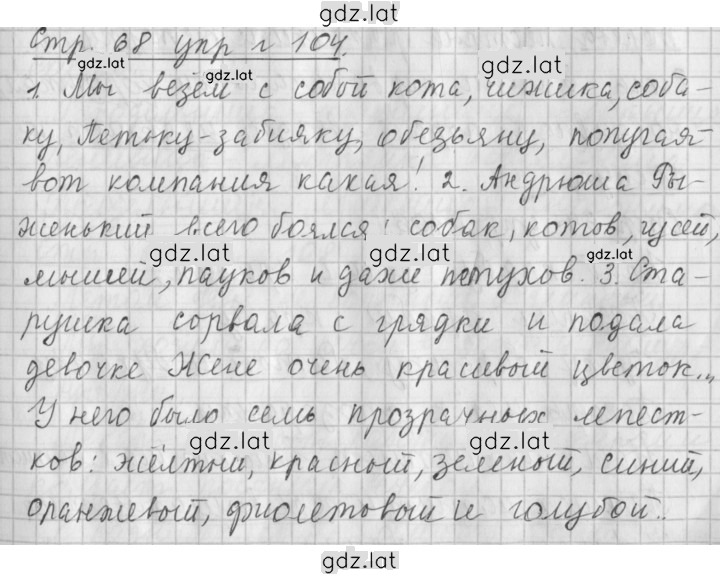 gdz.lat
Стр. 68 упр г 104.
gdz.lat gdz.lat gdz.lat
1. Мы везём с собой кота, чижика, соба-
ку, Петьку-забияку, обезьяну, попугая-
вот компания какая! 2. Андрюша Ры-
женький всего боялся: собак, котов, гусей,
gdz.lat gdz.lat
мышей, пауков и даже петухов. 3. Ста-
рушка сорвала с грядки и подала
девочке Жене очень красивый цветок...
У него было семь прозрачных лепест-
gdz.lat gdz.lat
ков: жёлтый, красный, зелёный, синий,
оранжевый, фиолетовый и голубой..
gdz.lat